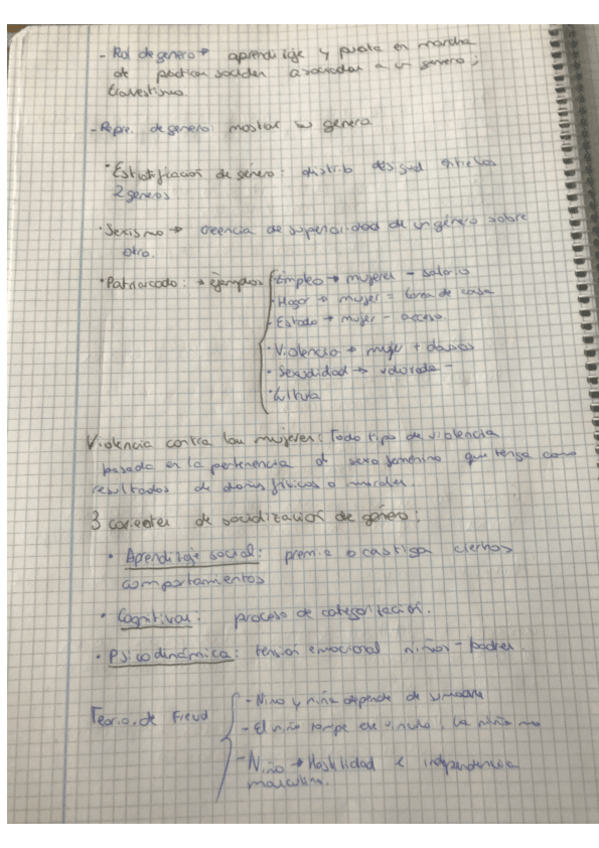 - Rol de genero → aprendizaje y puesta en marcha
de practicas sociales asociadas a un genero;
travestismo.
- Repre. de genero: mostrar tu genero
· Estratificación de género: distrib desigual entre los
2 generos
· Sexismo → creencia de superioridad de un género sobre
otro.
· Patriarcado: → ejemplos
- Empleo → mujeres - salario
- Hogar → mujer = tarea de casa
- Estado → mujer - acceso
· Violencia → mujer + daños
· Sexualidad → valorada -
· Cultura
Violencia contra las mujeres: Todo tipo de violencia
basada en la pertenencia al sexo femenino que tenga como
resultados de daños físicos o morales
3 corrientes de socialización de género:
· Aprendizaje social: premia o castiga ciertos
comportamientos
· Cognitivas: proceso de categorización.
· Psicodinámica: tensión emocional niños - padres
Teoría de Freud
- Niño y niña depende de su madre
- El niño rompe ese vinculo, la niña no
- Niño → Hostilidad e independencia
masculina.